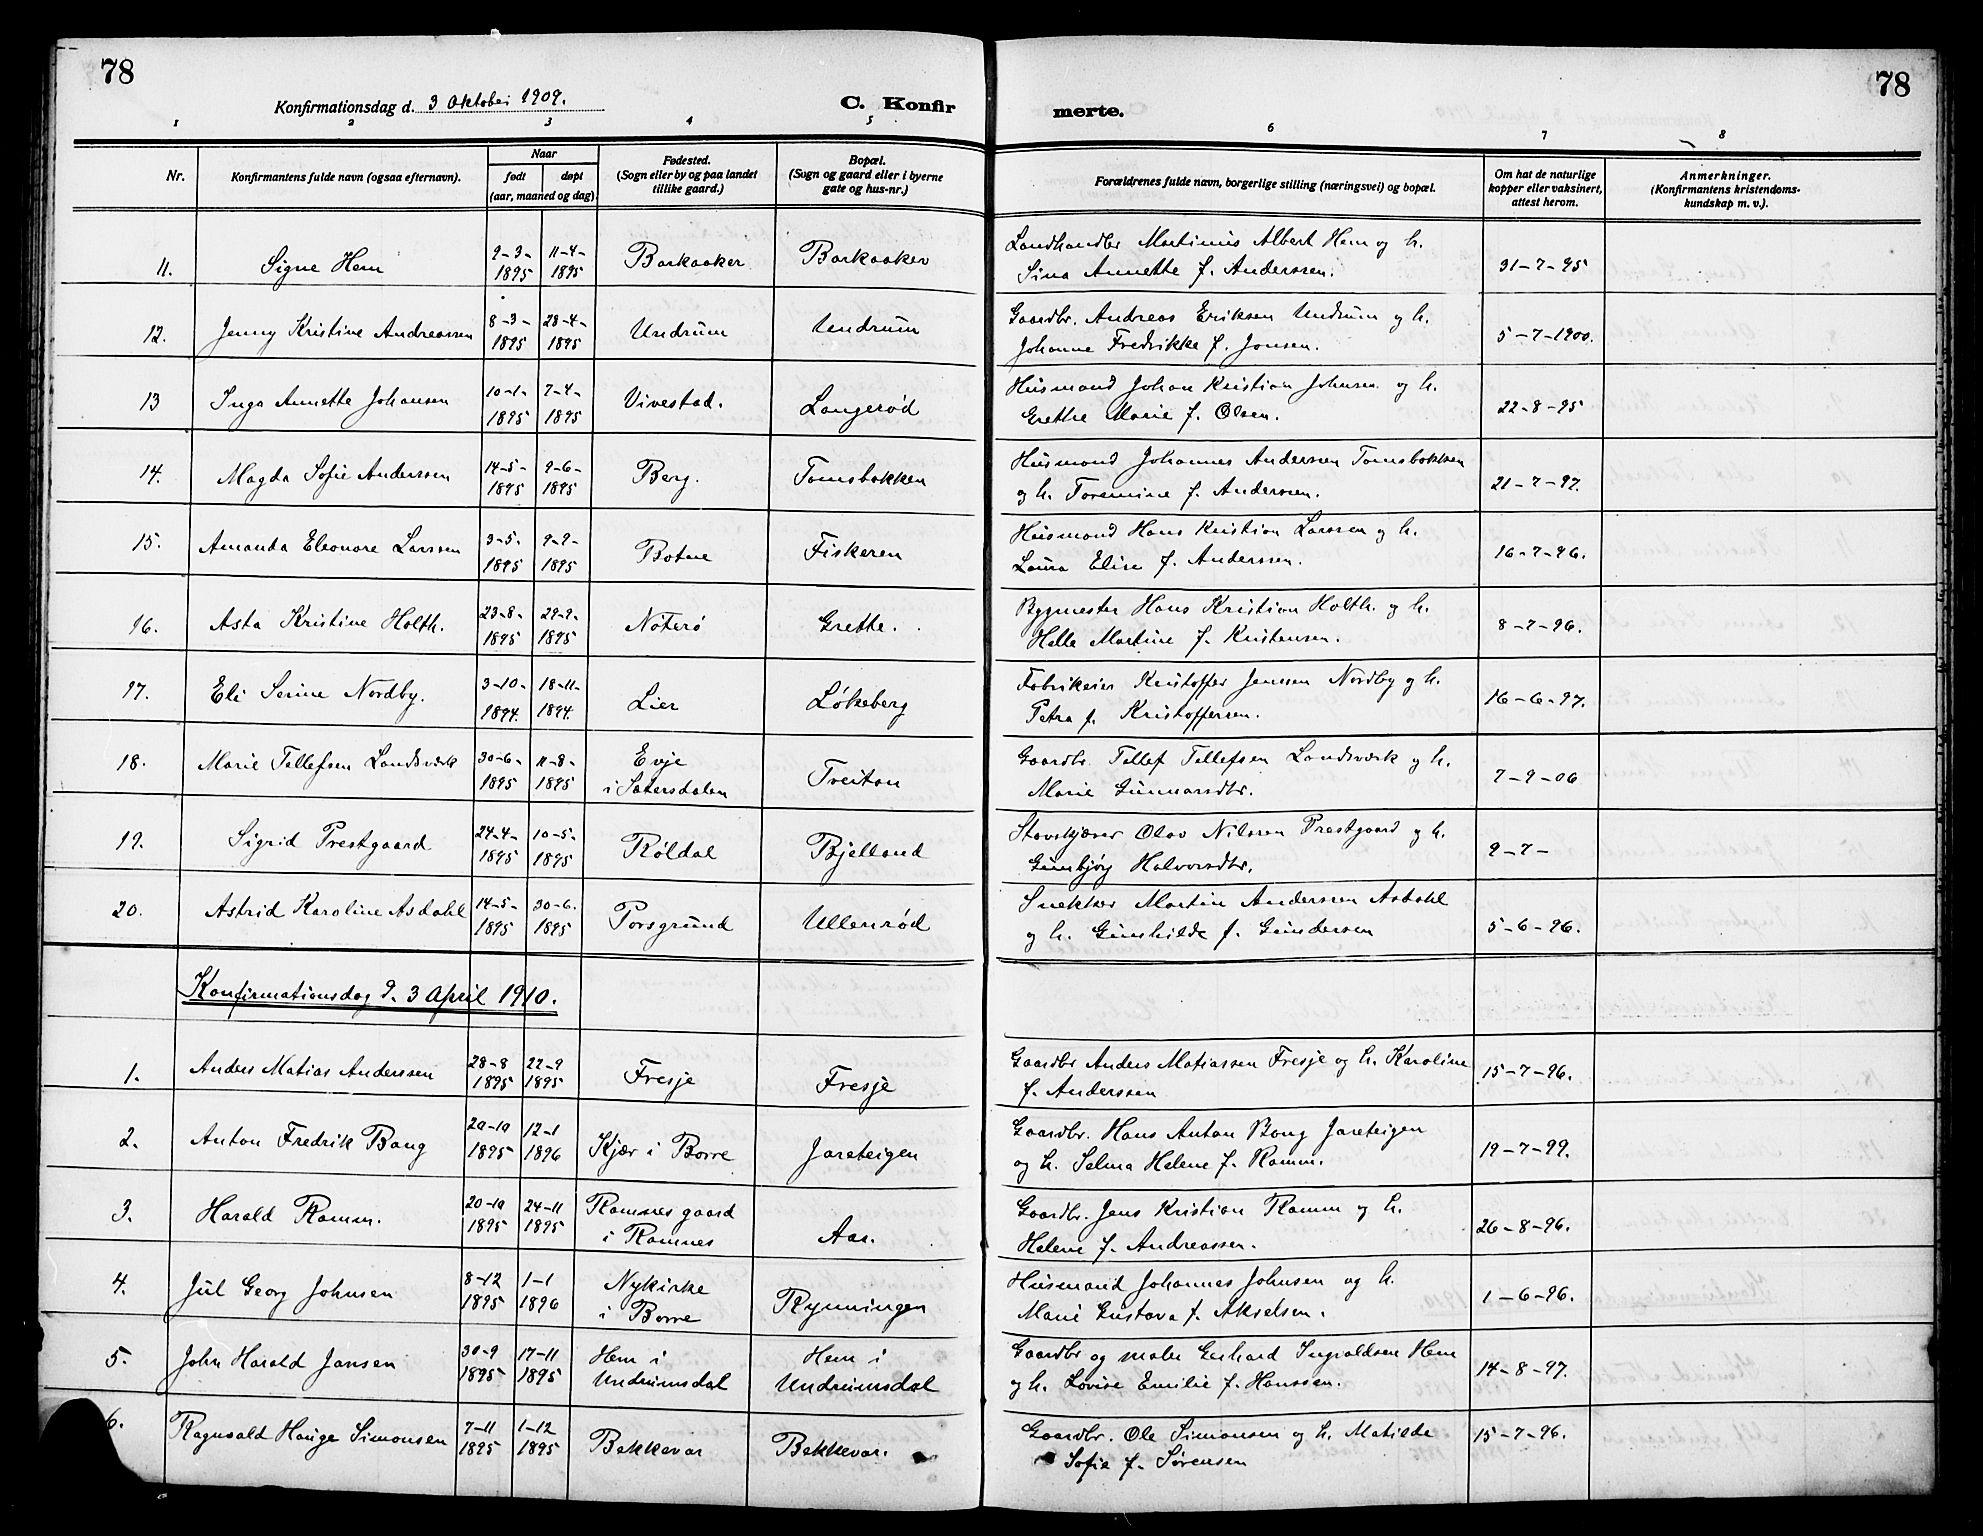 78
78
Konfirmationsdag d. 3 Oktober 1909.
C. Konfir
merte.
1 2 3 4 5 6 7 8
Nr.
Konfirmantens fulde navn (ogsaa efternavn).
Naar
født
døpt
(aar, maaned og dag).
Fødested.
(Sogn eller by og paa landet
tillike gaard.)
Bopæl.
(Sogn og gaard eller i byerne
gate og hus-nr.)
Forældrenes fulde navn, borgerlige stilling (næringsvei) og bopæl.
Om hat de naturlige
kopper eller vaksinert,
attest herom.
Anmerkninger.
(Konfirmantens kristendoms-
kundskap m. v.).
11. Signe Hem 9-3- 1895 11-4- 1895 Barkaaker Barkaaker
Landhandler Martinius Albert Hem og h.
Sina Annette f. Anderssen. 31-7-95
12. Jenny Kristine Andreassen 8-3- 1895 28-4- 1895 Undrum Undrum
Gaardbr. Andreas Eriksen Undrum og h.
Johanne Fredrikke f. Jonsen. 5-7-1900.
13 Inga Annette Johansen 10-1- 1895 7-4- 1895 Vivestad. Langerød
Husmand Johan Kristian Johnsen og h.
Grethe Marie f. Olsen. 22-8-95
14. Magda Sofie Anderssen 14-5- 1895 9-6- 1895 Berg. Tomsbakken
Husmand Johannes Anderssen Tomsbakken
og h. Toremine f. Anderssen. 21-7-97.
15. Amanda Eleonore Larssen 3-5- 1895 9-9- 1895 Botne Fiskeren
Husmand Hans Kristian Larssen og h.
Laura Elise f. Anderssen. 16-7-96.
16. Asta Kristine Holth. 23-8- 1895 29-9- 1895 Nøterø Grette.
Bygmester Hans Kristian Holth. og h.
Helle Martine f. Kristensen. 8-7-96.
17. Eli Serine Nordby. 3-10- 1894. 18-11- 1894. Lier Løkeberg
Fabrikeier Kristoffer Jenssen Nordby og h.
Petra f. Kristoffersen. 16-6-97.
18. Marie Tellefsen Landsværk 30-6- 1895 11-8- 1895 Evje
i Sætersdalen Treitan
Gaardbr. Tellef Tellefsen Landsværk og h.
Marie Gunnarsdtr. 7-9-06
19. Sigrid Prestgaard 24-4- 1895 10-5- 1895 Røldal Bjelland
Stavskjærer Olav Nilssen Prestgaard og h.
Gunbjøg Halvorsdtr. 9-7-
20. Astrid Karoline Asdahl 14-5- 1895 30-6. 1895 Porsgrund Ullenrød
Snekker Martin Anderssen Asdahl
og h. Gunhilde f. Gundersen 5-6-96.
Konfirmationsdag d. 3 April 1910.
1. Anders Matias Anderssen 28-8 1895 22-9 1895 Fresje Fresje
Gaardbr Anders Matiassen Fresje og h. Karoline
f. Anderssen 15-7-96.
2. Anton Fredrik Bang 20-10 1895 12-1 1896 Kjær i Borre Jareteigen
Gaardbr. Hans Anton Bang Jareteigen
og h. Selma Helene f. Ramm. 19-7-99.
3. Harald Ramm. 20-10 1895 24-11 1895 Ramnes gaard
i Ramnes Aar.
Gaardbr. Jens Kristian Ramm og h.
Helene f. Andreassen. 26-8-96.
4. Jul Georg Johnsen 8-12 1895 1-1 1896 Nykirke
i Borre Rynningen
Husmand Johannes Johnsen og h.
Marie Gustava f. Akselsen. 1-6-96.
5. John Harald Jansen 30-9 1895 17-11 1895 Hem i
Undrumsdal Hem i
Undrumsdal
Gaardbr og maler Gerhard Ingvaldsen Hem
og h. Lovise Emilie f. Hanssen. 14-8-97.
6. Ragnvald Hauge Simonsen 7-11 1895 1-12 1895 Bekkevar Bekkevar.
Gaardbr. Ole Simonsen og h. Matilde
Sofie f. Sørensen 15-7-96.